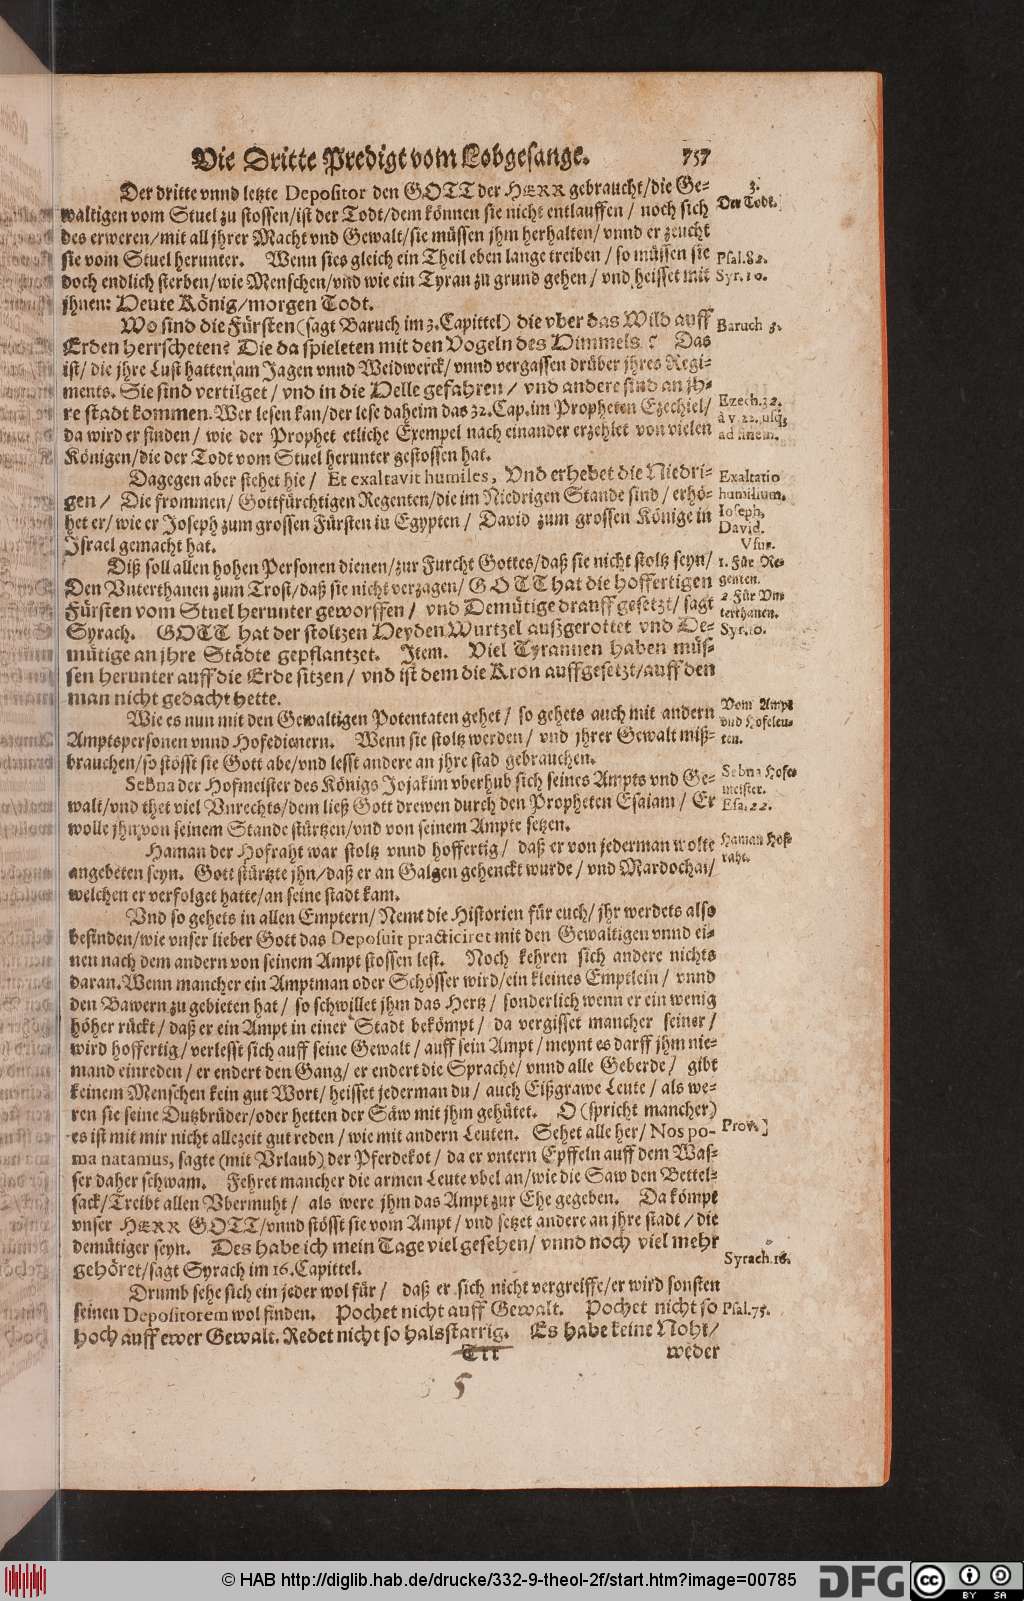 Die Dritte Predigt vom Lobgesange. 757
Der dritte vnnd letzte Depositor den GOTT der HERR gebraucht/die Ge-
waltigen vom Stuel zu stossen/ist der Todt/dem können sie nicht entlauffen / noch sich
des erweren/mit all jhrer Macht vnd Gewalt/sie müssen jhm herhalten/ vnnd er zeucht
sie vom Stuel herunter. Wenn sies gleich ein Theil eben lange treiben / so müssen sie
doch endlich sterben/wie Menschen/vnd wie ein Tyran zu grund gehen / vnd heisset mit
jhnen: Heute König/morgen Todt.
Wo sind die Fürsten (sagt Baruch im 3. Capittel) die vber das Wild auff
Erden herrscheten? Die da spieleten mit den Vogeln des Himmels? Das
ist/ die jhre Lust hatten am Jagen vnnd Weldwerck/ vnnd vergassen drüber jhres Regi-
ments. Sie sind vertilget / vnd in die Helle gefahren / vnd andere sind an jh-
re stadt kommen. Wer lesen kan/der lese daheim das 32. Cap. im Propheten Ezechiel/
da wird er finden / wie der Prophet etliche Exempel nach einander erzehlet von vielen
Königen/die der Todt vom Stuel herunter gestossen hat.
Dagegen aber stehet hie / Et exaltavit humiles, Vnd erhebet die Niedri-
gen / Die frommen/ Gottfürchtigen Regenten/die im Niedrigen Stande sind / erhö-
het er/ wie er Joseph zum grossen Fürsten in Egypten / David zum grossen Könige in
Jsrael gemacht hat.
Diß soll allen hohen Personen dienen/zur Furcht Gottes/daß sie nicht stoltz seyn/
Den Vnterthanen zum Trost/daß sie nicht verzagen/ GOTT hat die hoffertigen
Fürsten vom Stuel herunter geworffen / vnd Demütige drauff gesetzt/ sagt
Syrach. GOTT hat der stoltzen Heyden Wurtzel außgerottet vnd De-
mütige an jhre Städte gepflantzet. Jtem. Viel Tyrannen haben müs-
sen herunter auff die Erde sitzen / vnd ist dem die Kron auffgesetzt/auff den
man nicht gedacht hette.
Wie es nun mit den Gewaltigen Potentaten gehet / so gehets auch mit andern
Amptspersonen vnnd Hofedienern. Wenn sie stoltz werden / vnd jhrer Gewalt miß-
brauchen/so stösst sie Gott abe/vnd lesst andere an jhre stad gebrauchen.
Sebna der Hofmeister des Königs Jojakim vberhub sich seines Ampts vnd Ge-
walt/vnd thet viel Vnrechts/dem ließ Gott drewen durch den Propheten Esaiam / Er
wolle jhn von seinem Stande stürtzen/vnd von seinem Ampte setzen.
Haman der Hofraht war stoltz vnnd hoffertig / daß er von jederman wolte
angebeten seyn. Gott stürtzte jhn/daß er an Galgen gehenckt wurde / vnd Mardochai/
welchen er verfolget hatte/an seine stadt kam.
Vnd so gehets in allen Emptern/ Nemt die Historien für euch/ jhr werdets also
befinden/wie vnser lieber Gott das Deposuit practiciret mit den Gewaltigen vnnd ei-
nen nach dem andern von seinem Ampt stossen lest. Noch kehren sich andere nichts
daran. Wenn mancher ein Amptman oder Schösser wird/ein kleines Emptlein / vnnd
den Bawern zu gebieten hat / so schwillet jhm das Hertz / sonderlich wenn er ein wenig
höher rückt / daß er ein Ampt in einer Stadt bekömpt / da vergisset mancher seiner /
wird hoffertig / verlesst sich auff seine Gewalt / auff sein Ampt / meynt es darff jhm nie-
mand einreden / er endert den Gang/ er endert die Sprache/ vnnd alle Geberde / gibt
keinem Menschen kein gut Wort/ heisset jederman du / auch Eißgrawe Leute / als we-
ren sie seine Dutzbrüder/oder hetten der Säw mit jhm gehütet. O (spricht mancher)
es ist mit mir nicht allezeit gut reden / wie mit andern Leuten. Sehet alle her/ Nos po-
ma natamus, sagte (mit Vrlaub) der Pferdekot / da er vntern Epffeln auff dem Was-
ser daher schwam. Fehret mancher die armen Leute vbel an/wie die Saw den Bettel-
sack/Treibt allen Vbermuht / als were jhm das Ampt zur Ehe gegeben. Da kömpt
vnser HERR GOTT/vnnd stösst sie vom Ampt / vnd setzet andere an jhre stadt / die
demütiger seyn. Des habe ich mein Tage viel gesehen / vnnd noch viel mehr
gehöret/sagt Syrach im 16. Capittel.
Drumb sehe sich ein jeder wol für / daß er sich nicht vergreiffe/er wird sonsten
seinen Depositorem wol finden. Pochet nicht auff Gewalt. Pochet nicht so
hoch auff ewer Gewalt. Redet nicht so halsstarrig. Es habe keine Noht/
Ttt weder
5
3.
Der Todt.
Psal. 82.
Syr. 10.
Baruch 3.
Ezech. 32.
à v. 22. usq;
ad finem.
Exaltatio
humilium.
Ioseph,
David.
Vsus.
1. Für Re-
genten.
2 Für Vn-
terthanen.
Syr. 10.
Vom Ampt
vnd Hofeleu-
ten.
Sebna Hofe-
meister.
Esa. 22.
Haman Hof-
raht.
Prov.
Syrach. 16.
Psal. 75.
© HAB http://diglib.hab.de/drucke/332-9-theol-2f/start.htm?image=00785
DFG
cc BY SA